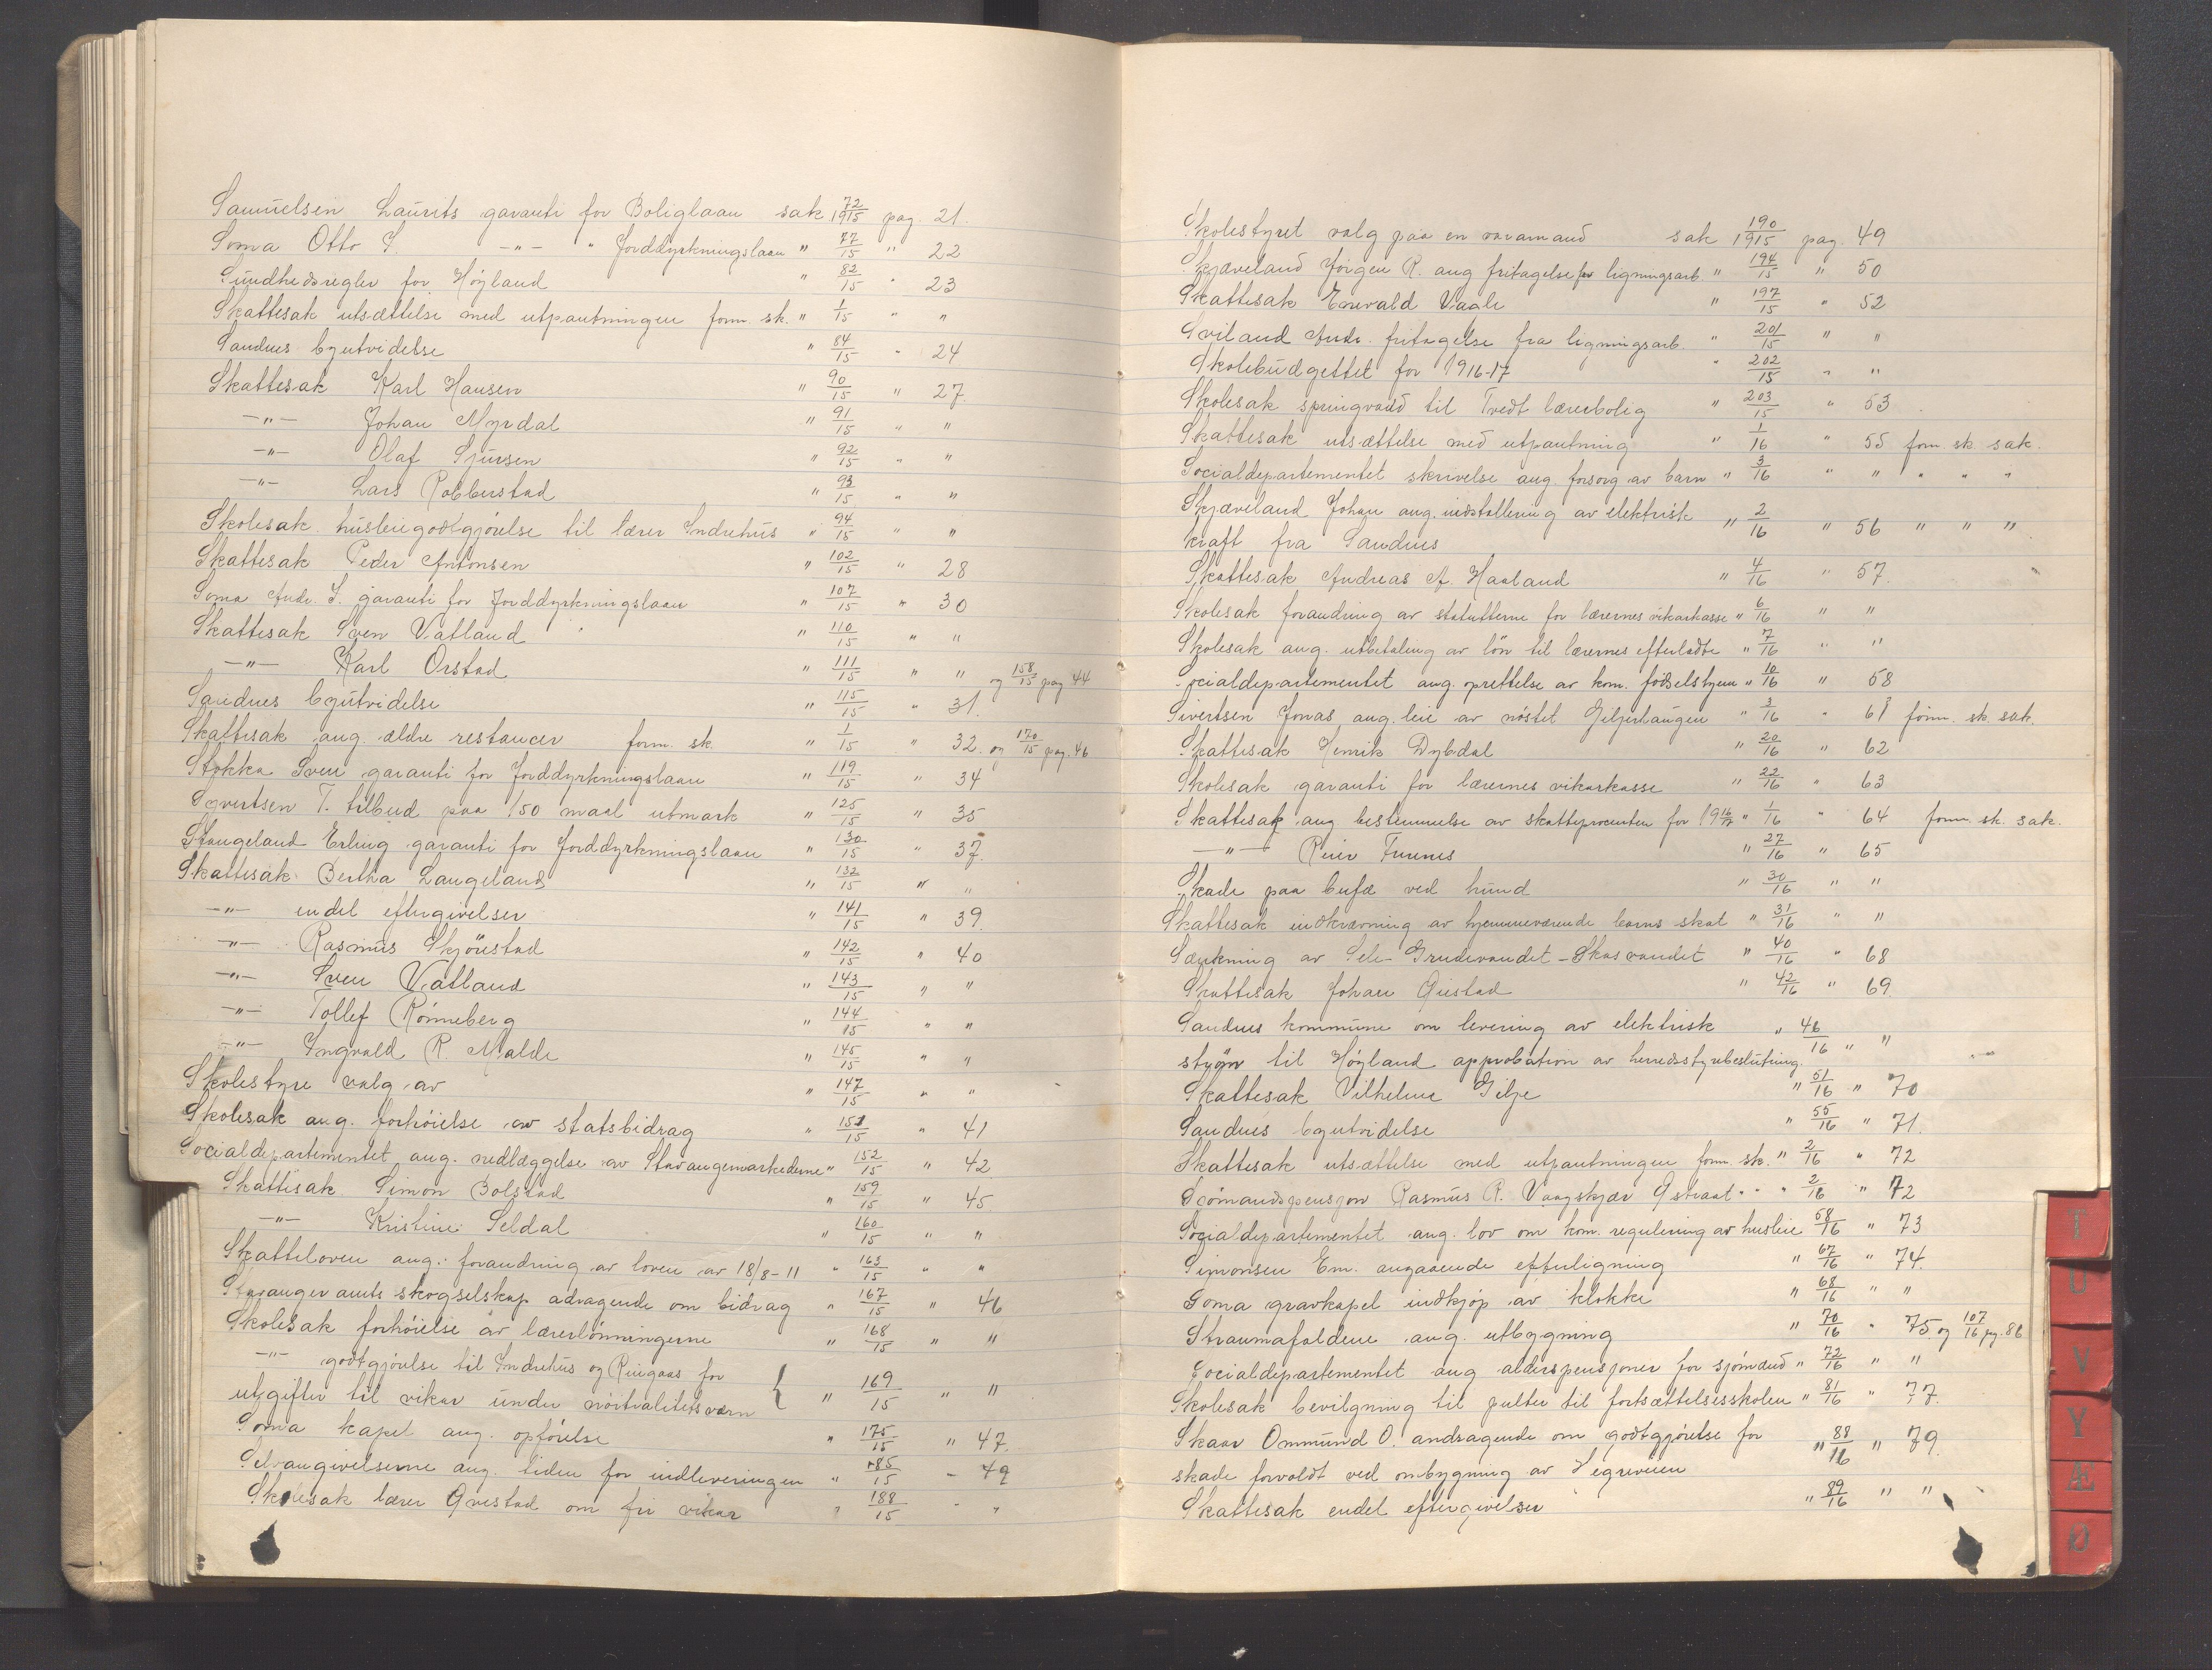 Samuelsen Laurits garanti for Boliglaan sak 72/1915 pag. 21.
Soma Otto I. -"- " Jorddyrkningslaan " 77/15 " 22
Sundhedsregler for Høyland " 82/15 " 23
Skattesak utsættelse med utpantningen form. sk. " 1/15 " "
Sandnes byutvidelse " 84/15 " 24
Skattesak Karl Hansen " 90/15 " 27.
-"- Johan Myrdal " 91/15 " "
-"- Olaf Sjursen " 92/15 " "
-"- Lars Robberstad " 93/15 " "
Skolesak husleiegodtgjørelse til lærer Indrehus " 94/15 " "
Skattesak Peder Antonsen " 102/15 " 28
Soma Andr. I. garanti for Jorddyrkningslaan " 107/15 " 30
Skattesak Sven Vatland " 110/15 " "
-"- Karl Orstad " 111/15 " " og 158/15 pag 44
Sandnes byutvidelse " 115/15 " 31.
Skattesak ang. ældre restancer form. sk. " 1/15 " 32. og 170/15 pag. 46
Stokka Sven garanti for Jorddyrkningslaan " 119/15 " 34
Syvertsen T. tilbud paa 150 maal utmark " 125/15 " 35
Stangeland Erling garanti for Jorddyrkningslaan " 130/15 " 37.
Skattesak Bertha Langeland " 132/15 " "
-"- endel eftergivelser " 141/15 " 39.
-"- Rasmus Skjörestad " 142/15 " 40
-"- Sven Vatland " 143/15 " "
-"- Tollef Rönneberg " 144/15 " "
-"- Ingvald R. Malde " 145/15 " "
Skolestyre valg av " 147/15 " "
Skolesak ang. forhöielse av statsbidrag " 151/15 " 41
Socialdepartementet ang. nedlæggelse av Stavangermarkederne " 152/15 " 42
Skattesak Simon Bolstad " 159/15 " 45
-"- Kristine Seldal " 160/15 " "
Skatteloven ang. forandring av loven av 18/8-11 " 163/15 " "
Stavanger amts skogselskap adragende om bidrag " 167/15 " 46
Skolesak forhöielse av lærerlönningerne " 168/15 " "
-"- godtgjörelse til Indrehus og Ringaas for
utgifter til vikar under nöitralitetsværn { " 169/15 " "
Soma kapel ang. opförelse " 175/15 " 47.
Selvangivelserne ang. tiden for indleveringen " 185/15 - 49
Skolesak lærer Qvestad om fri vikar " 188/15 - "
Skolestyret valg paa en varamand sak 190/1915 pag. 49
Skjæveland Jörgen R. ang fritagelse for ligningsarb " 194/15 " 50
Skattesak Enevald Vagle " 197/15 " 52
Sviland Andr. fritagelse fra ligningsarb. " 201/15 " "
Skolebudgettet for 1916-17 " 202/15 " "
Skolesak springvand til Tvedt lærerbolig " 203/15 " 53
Skattesak utsættelse med utpantning " 1/16 " 55 form. sk. sak.
Socialdepartementet skrivelse ang. forsorg av barn " 3/16 " " " " "
Skjæveland Johan ang. indstallering av elektrisk
kraft fra Sandnes " 2/16 " 56 " " "
Skattesak Andreas A. Haaland " 4/16 " 57.
Skolesak forandring av statutterne for lærernes vikarkasse " 6/16 " "
Skolesak ang. utbetaling av lön til lærernes efterladte " 7/16 " "
Socialdepartementet ang. oprettelse av kom. födselshjem " 10/16 " 58
Sivertsen Jonas ang. leie av nöstet Giljerhaugen " 3/16 " 61 form. sk. sak.
Skattesak Henrik Dybdal " 20/16 " 62
Skolesak garanti for lærernes vikarkasse " 22/16 " 63
Skattesak ang bestemmelse av skatteprocenten for 1916/17 " 1/16 " 64 form. sk. sak.
-"- Reier Furenes " 27/16 " 65
Skade paa bufæ ved hund " 30/16 " "
Skattesak indkrævning av hjemmeværende barns skat " 31/16 " "
Sænkning av Sele- Grudevandet - Skasvandet " 40/16 " 68
Skattesak Johan Qvistad " 42/16 " 69.
Sandnes kommune om levering av elektrisk " 46/16 " "
ström til Höyland approbation av herredsstyrebeslutning.
Skattesak Vilhelme Gilje " 51/16 " 70
Sandnes byutvidelse " 55/16 " 71.
Skattesak utsættelse med utpantningen form. sk. " 2/16 " 72
Sjömandspensjon Rasmus R. Vaagskjær Gstraat " " 2/16 " 72
Socialdepartementet ang. lov om kom. regulering av husleie 58/16 " 73
Simonsen Em. angaaende efterligning " 67/16 " 74.
Soma gravkapel indkjöp av klokke " 68/16 " "
Straumafaldene ang. utbygning " 70/16 " 75 og 107/16 pg. 86
Socialdepartementet ang alderspensjoner for sjömænd " 72/16 " "
Skolesak bevilgning til pulter til fortsættelsesskolen " 81/16 " 77.
Skaar Ommund O. andragende om godtgjörelse for
skade forvoldt ved ombygning av Hegreveien " 88/16 " 79.
Skattesak endel eftergivelser " 89/16 " "
T
U
V
Y
Æ
Ø